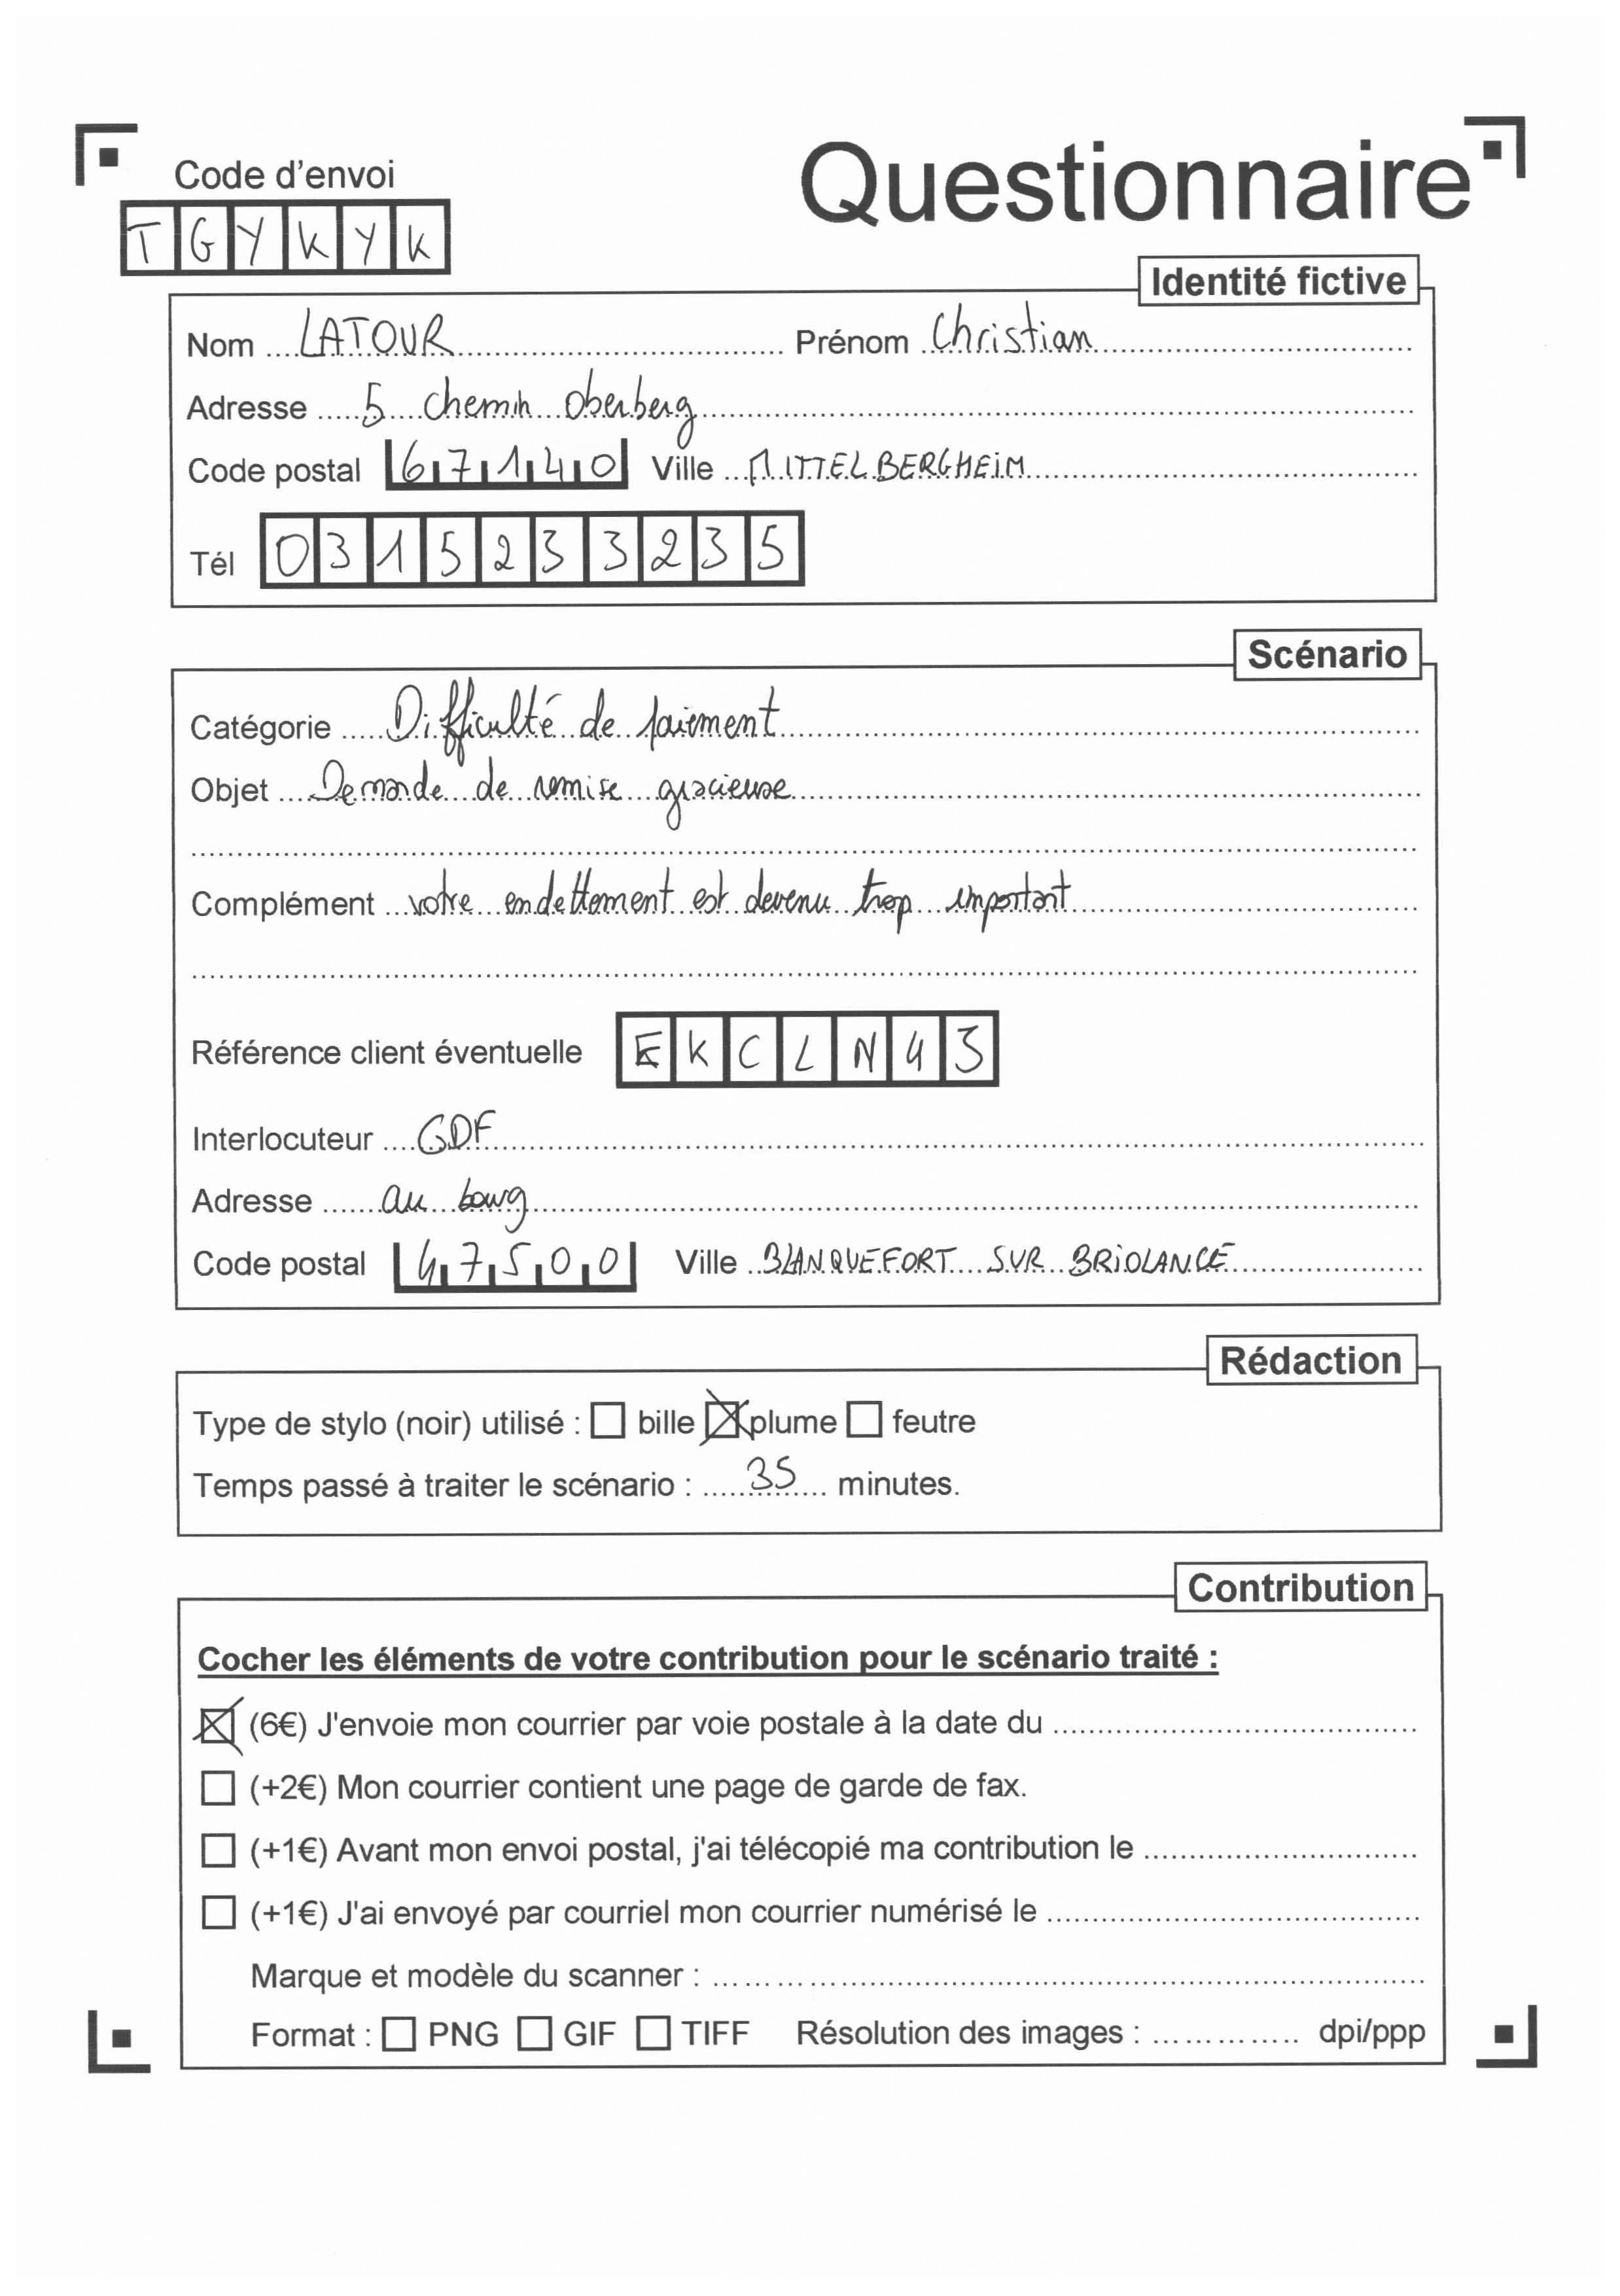 Code d'envoi
Questionnaire
TGYKYK
Identité fictive
Nom LATOUR Prénom Christian
Adresse 5 chemin Oberberg
Code postal 67140 Ville MITTELBERGHEIM
Tél 0315233235
Scénario
Catégorie Difficulté de paiement
Objet Demande de remise gracieuse
Complément votre endettement est devenu trop important
Référence client éventuelle EKCLN43
Interlocuteur GDF
Adresse au bourg
Code postal 47500 Ville BLANQUEFORT SUR BRIOLANCE
Rédaction
Type de stylo (noir) utilisé : bille plume feutre
Temps passé à traiter le scénario : 35 minutes.
Contribution
Cocher les éléments de votre contribution pour le scénario traité :
(6€) J'envoie mon courrier par voie postale à la date du
(+2€) Mon courrier contient une page de garde de fax.
(+1€) Avant mon envoi postal, j'ai télécopié ma contribution le
(+1€) J'ai envoyé par courriel mon courrier numérisé le
Marque et modèle du scanner :
Format : PNG GIF TIFF Résolution des images : dpi/ppp